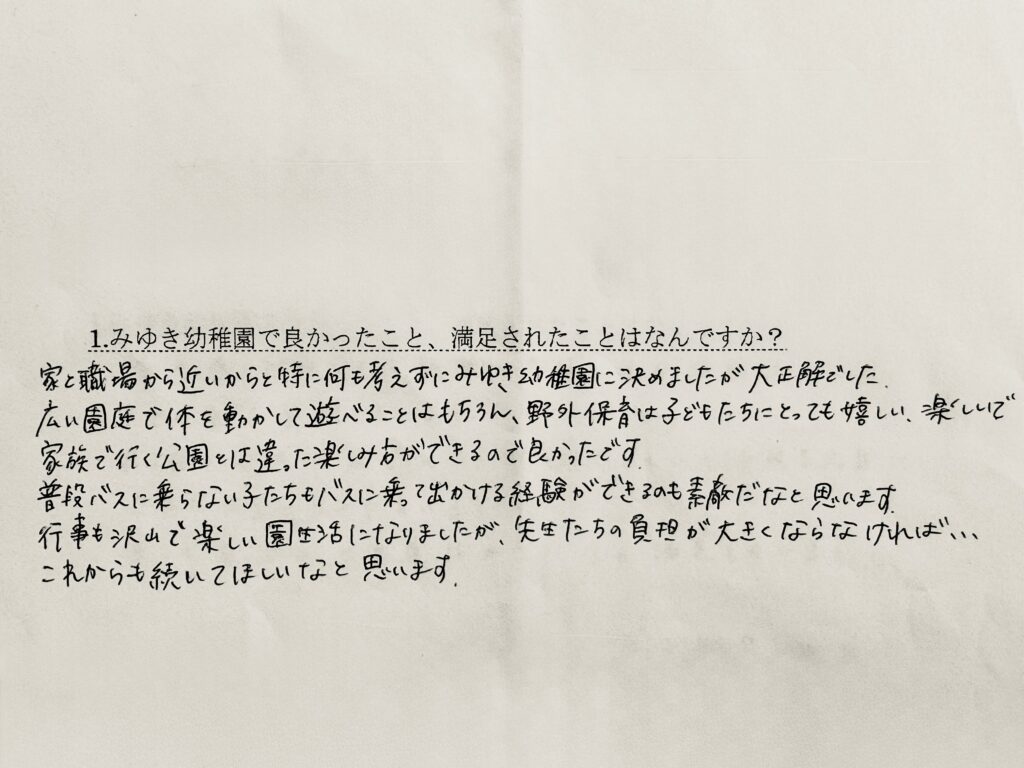 1.みゆき幼稚園で良かったこと、満足されたことはなんですか？
家と職場から近いからと特に何も考えずにみゆき幼稚園に決めましたが大正解でした.
広い園庭で体を動かして遊べることはもちろん、野外保育は子どもたちにとっても嬉しい、楽しいで
家族で行く公園とは違った楽しみ方ができるので良かったです.
普段バスに乗らない子たちもバスに乗って出かける経験ができるのも素敵だなと思います.
行事も沢山で楽しい園生活になりましたが、先生たちの負担が大きくならなければ、、、
これからも続いてほしいなと思います.